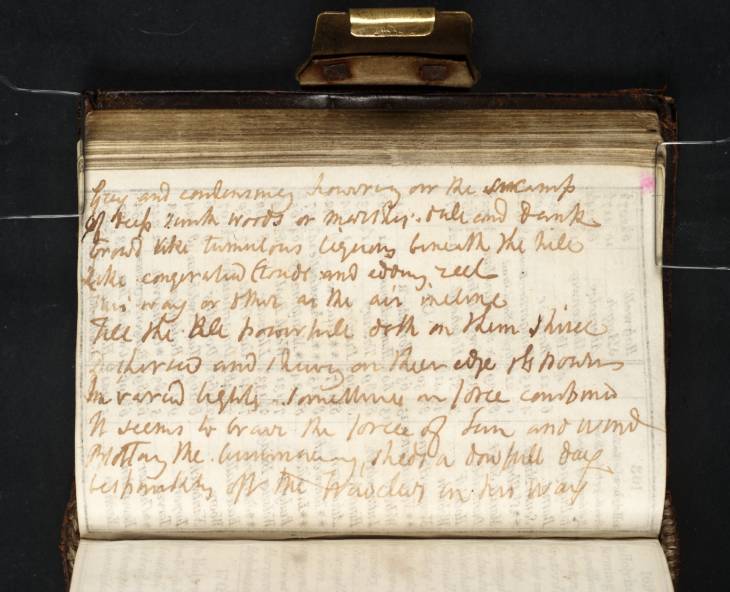 Grey and condensing hovering oer the swamp
Of deep sunk woods or marshy dale and dank
Crowd like tumulous legions beneath the hill
Like congerated Clouds and eddying reel
this way or other as the air incline
Till the all powerfull doth on them shine
Dispersed and shewing on their edge his powers
In varied lights sometimes in force combined
It seems to brave the force of Sun and wind
Blotting the luminary, sheds a doubfull day
bespreading oft the traveller in his way